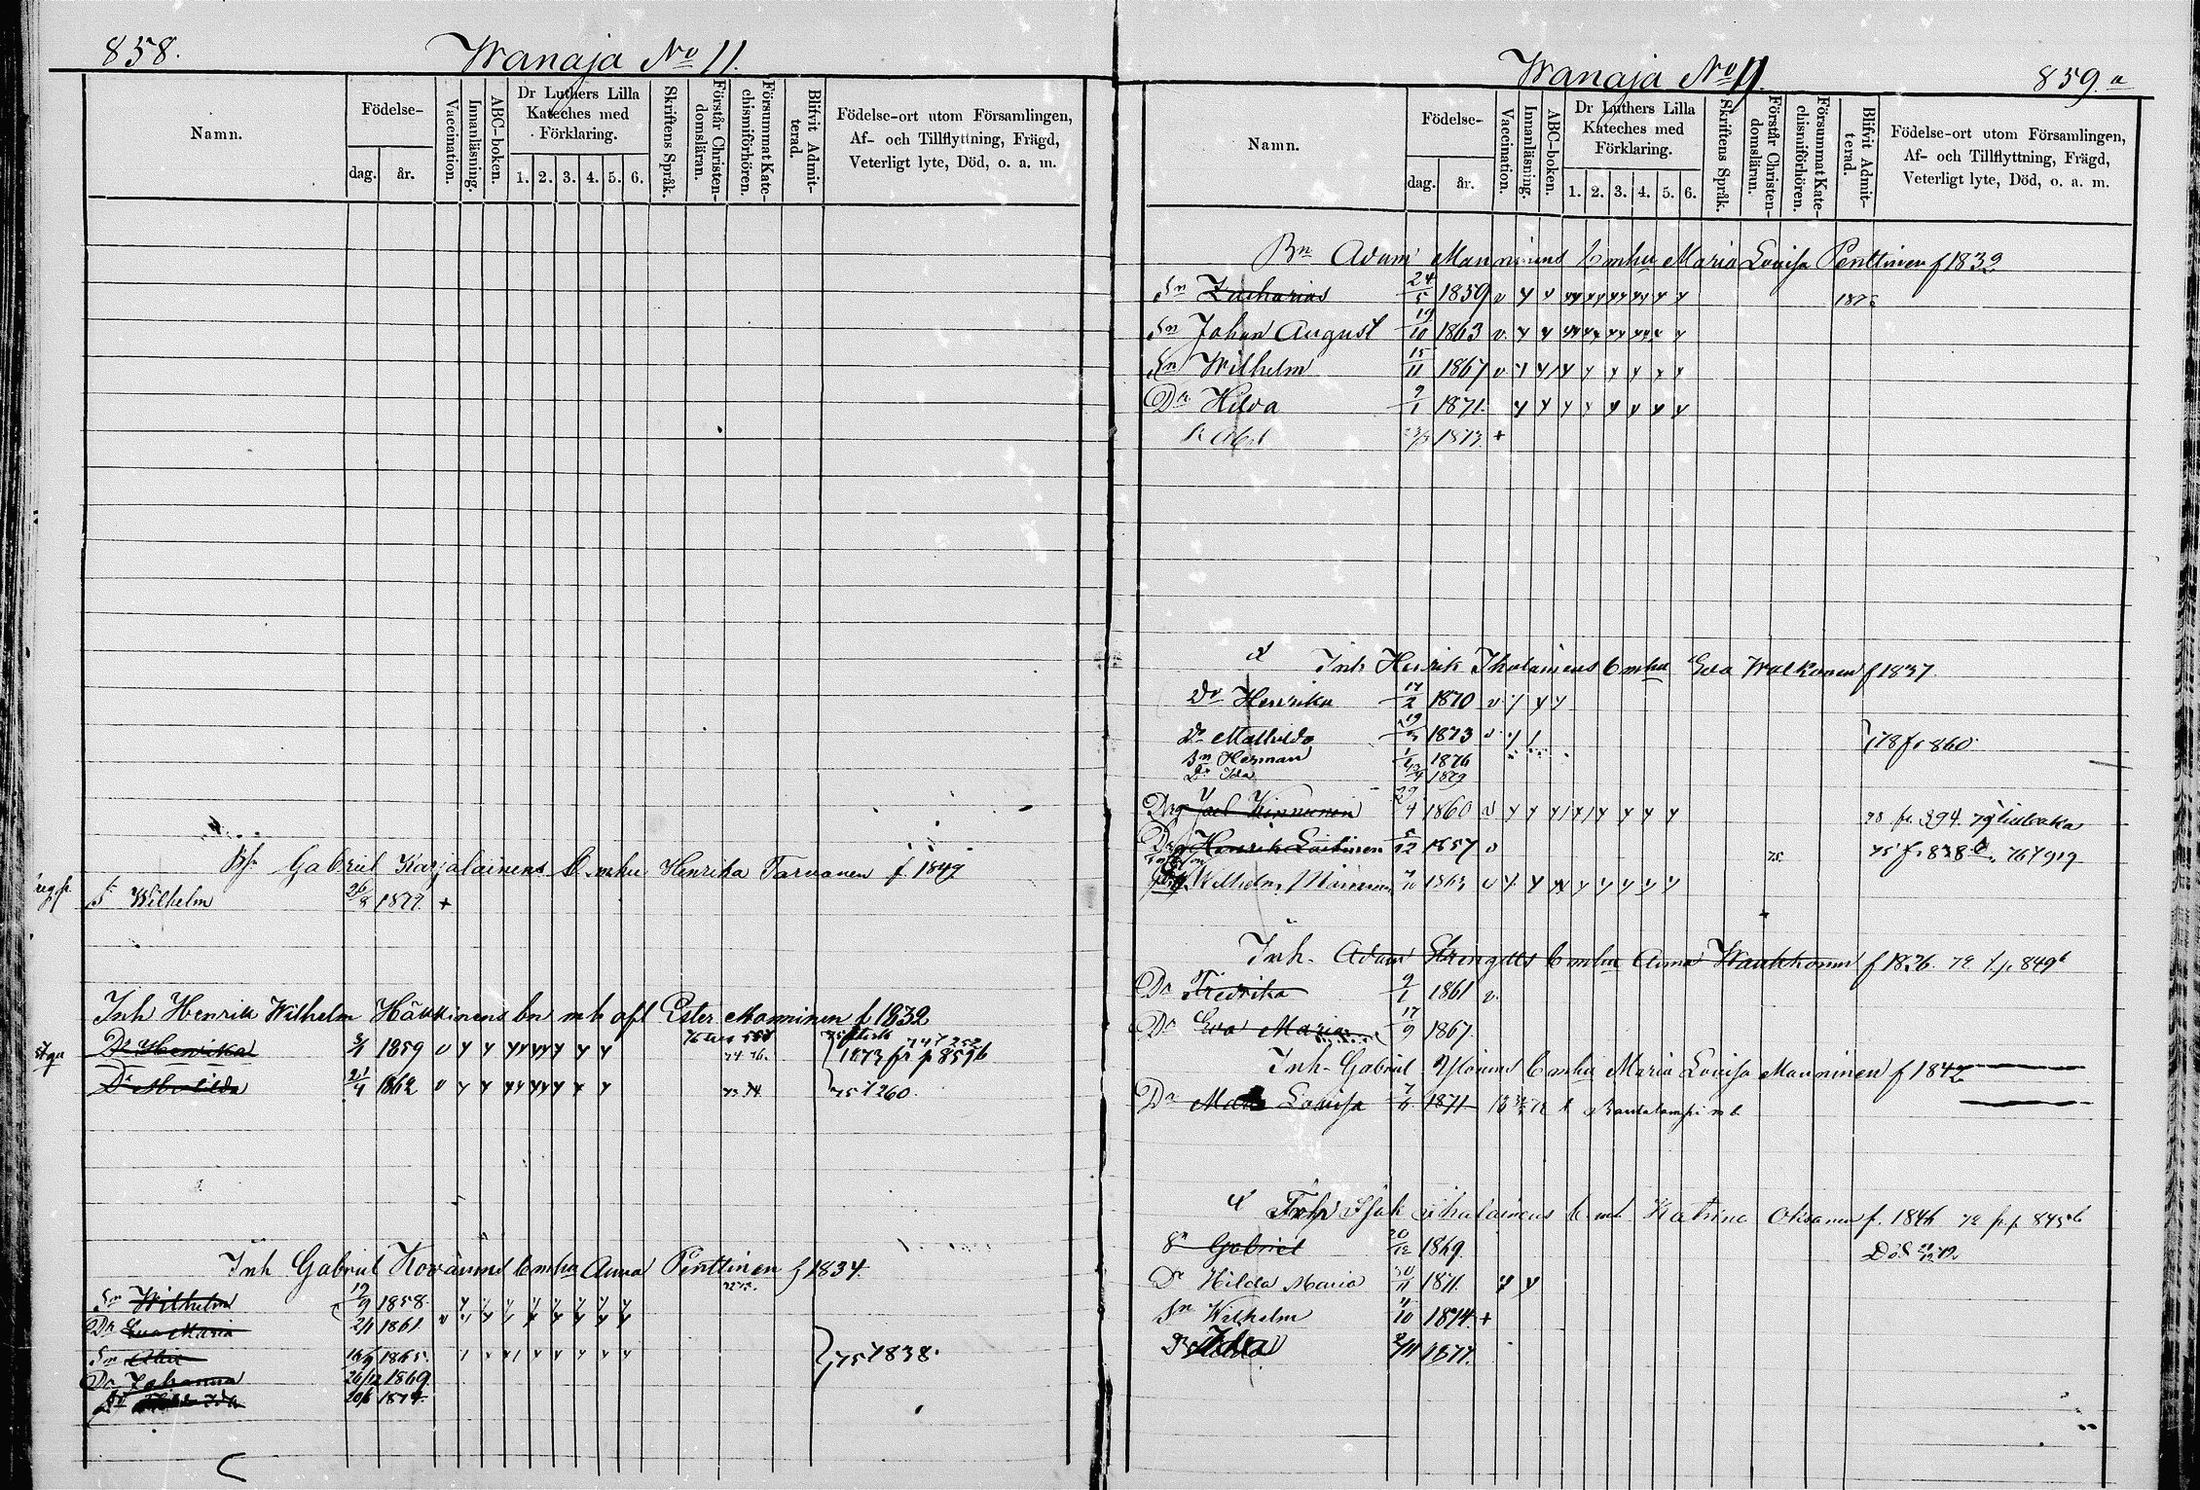 858.
Wanaja No 11.
Namn.
Födelse-
dag.
år.
Vaccination.
Innanläsning.
ABC-boken.
Dr Luthers Lilla Kateches med Förklaring.
1. 2. 3. 4. 5. 6.
Skriftens Språk.
Förstår Christendomsläran.
Försummat Katechismiförhören.
Blifvit Admitterad.
Födelse-ort utom Församlingen,
Af- och Tillflyttning, Frägd,
Veterligt lyte, Död, o. a. m.
Gabriel Karjalainens b. m hu Henrika Tarvanen f. 1849
Wilhelm 26/8 1879 +
Inh Henrik Wilhelm Häkkinens bn m h afl Ester Manninen f 1832
Dr Henrika 3/1 1859 v y y yy yy y y y 1873 fr p 859b
Dr Matilda 21/4 1862 v y y yy yy y y y 75 f 260.
Inh Gabriel Kovainens b m hu Anna Penttinen f 1834.
Sn Wilhelm 19/9 1858
Dr Eva Maria 2/1 1861
Sn Abel 1865.
Dr Johanna 26/12 1869
Ida 20/6 1874
75 f 838.
Wanaja No 11.
859.a
Namn.
Födelse-
dag.
år.
Vaccination.
Innanläsning.
ABC-boken.
Dr Luthers Lilla Kateches med Förklaring.
1. 2. 3. 4. 5. 6.
Skriftens Språk.
Förstår Christendomsläran.
Försummat Katechismiförhören.
Blifvit Admitterad.
Födelse-ort utom Församlingen,
Af- och Tillflyttning, Frägd,
Veterligt lyte, Död, o. a. m.
Bn Adam Manninens b m hu Maria Lovisa Penttinen f 1832
Sn Zacharias 24/5 1859 v y v
Sn Johan August 19/10 1863 v. y y
Sn Wilhelm 15/11 1867 v y y
Dr Hilda 9/1 1871. y y y y y y y y
Abel 1873. +
Inh Henrik Ihalainens b m hu Eva Walkonen f 1837.
Dr Henrika 17/2 1870 v y y y
Dr Mathilda 1873 v
Sn Herman 1876
Dr Ida 1879
178 fr 860.
Drg Joel Kinnunen 1860 v y y y y y y y y y 78 fr. 394.
Drg Henrik Laitinen 1857 v 75 f. 838 b. 76 f 919
Wilhelm Manninen 1863 v y
Inh. Adam Strengells b m hu Anna Waukkonen f 1836. 72 f. p. 849b
Dr Fredrika 9/1 1861 v.
Dr Eva Maria 17/9 1867.
Inh. Gabriel Ylöinens b m hu Maria Lovisa Manninen f 1842
Dr Maria Lovisa 7/6 1871 Rautalampi m b
Inh Isak Ihalainens b m h Katrina Oksanen f. 1846 72 fr p 845b
Sn Gabriel 20/12 1869. Död
Dr Hilda Maria 30/11 1871. y y
Sn Wilhelm 11/10 1874. +
Dr Ida 2/11 1877.